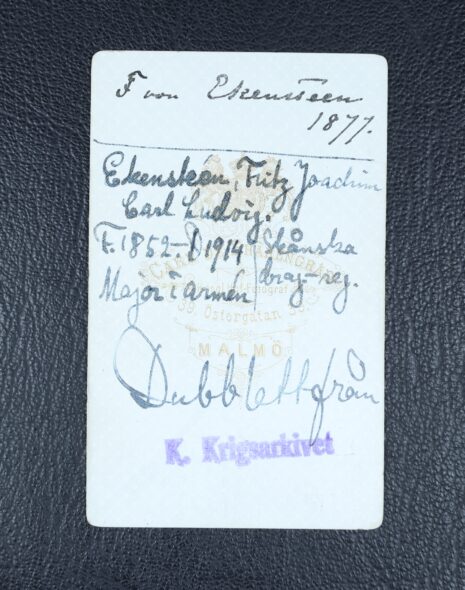 F von Ekensteen
1877.
Ekensteen, Fritz Joachim
Carl Ludvig.
F. 1852-D 1914 Skånska
Major i armén drag-reg.
39. Östergatan 39.
MALMÖ
Dubblett från
K. Krigsarkivet